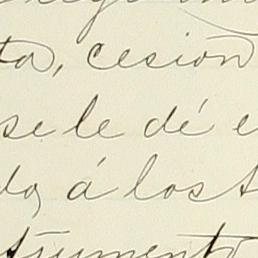 ta, cesion
se le dé e
do, á los t
trumento